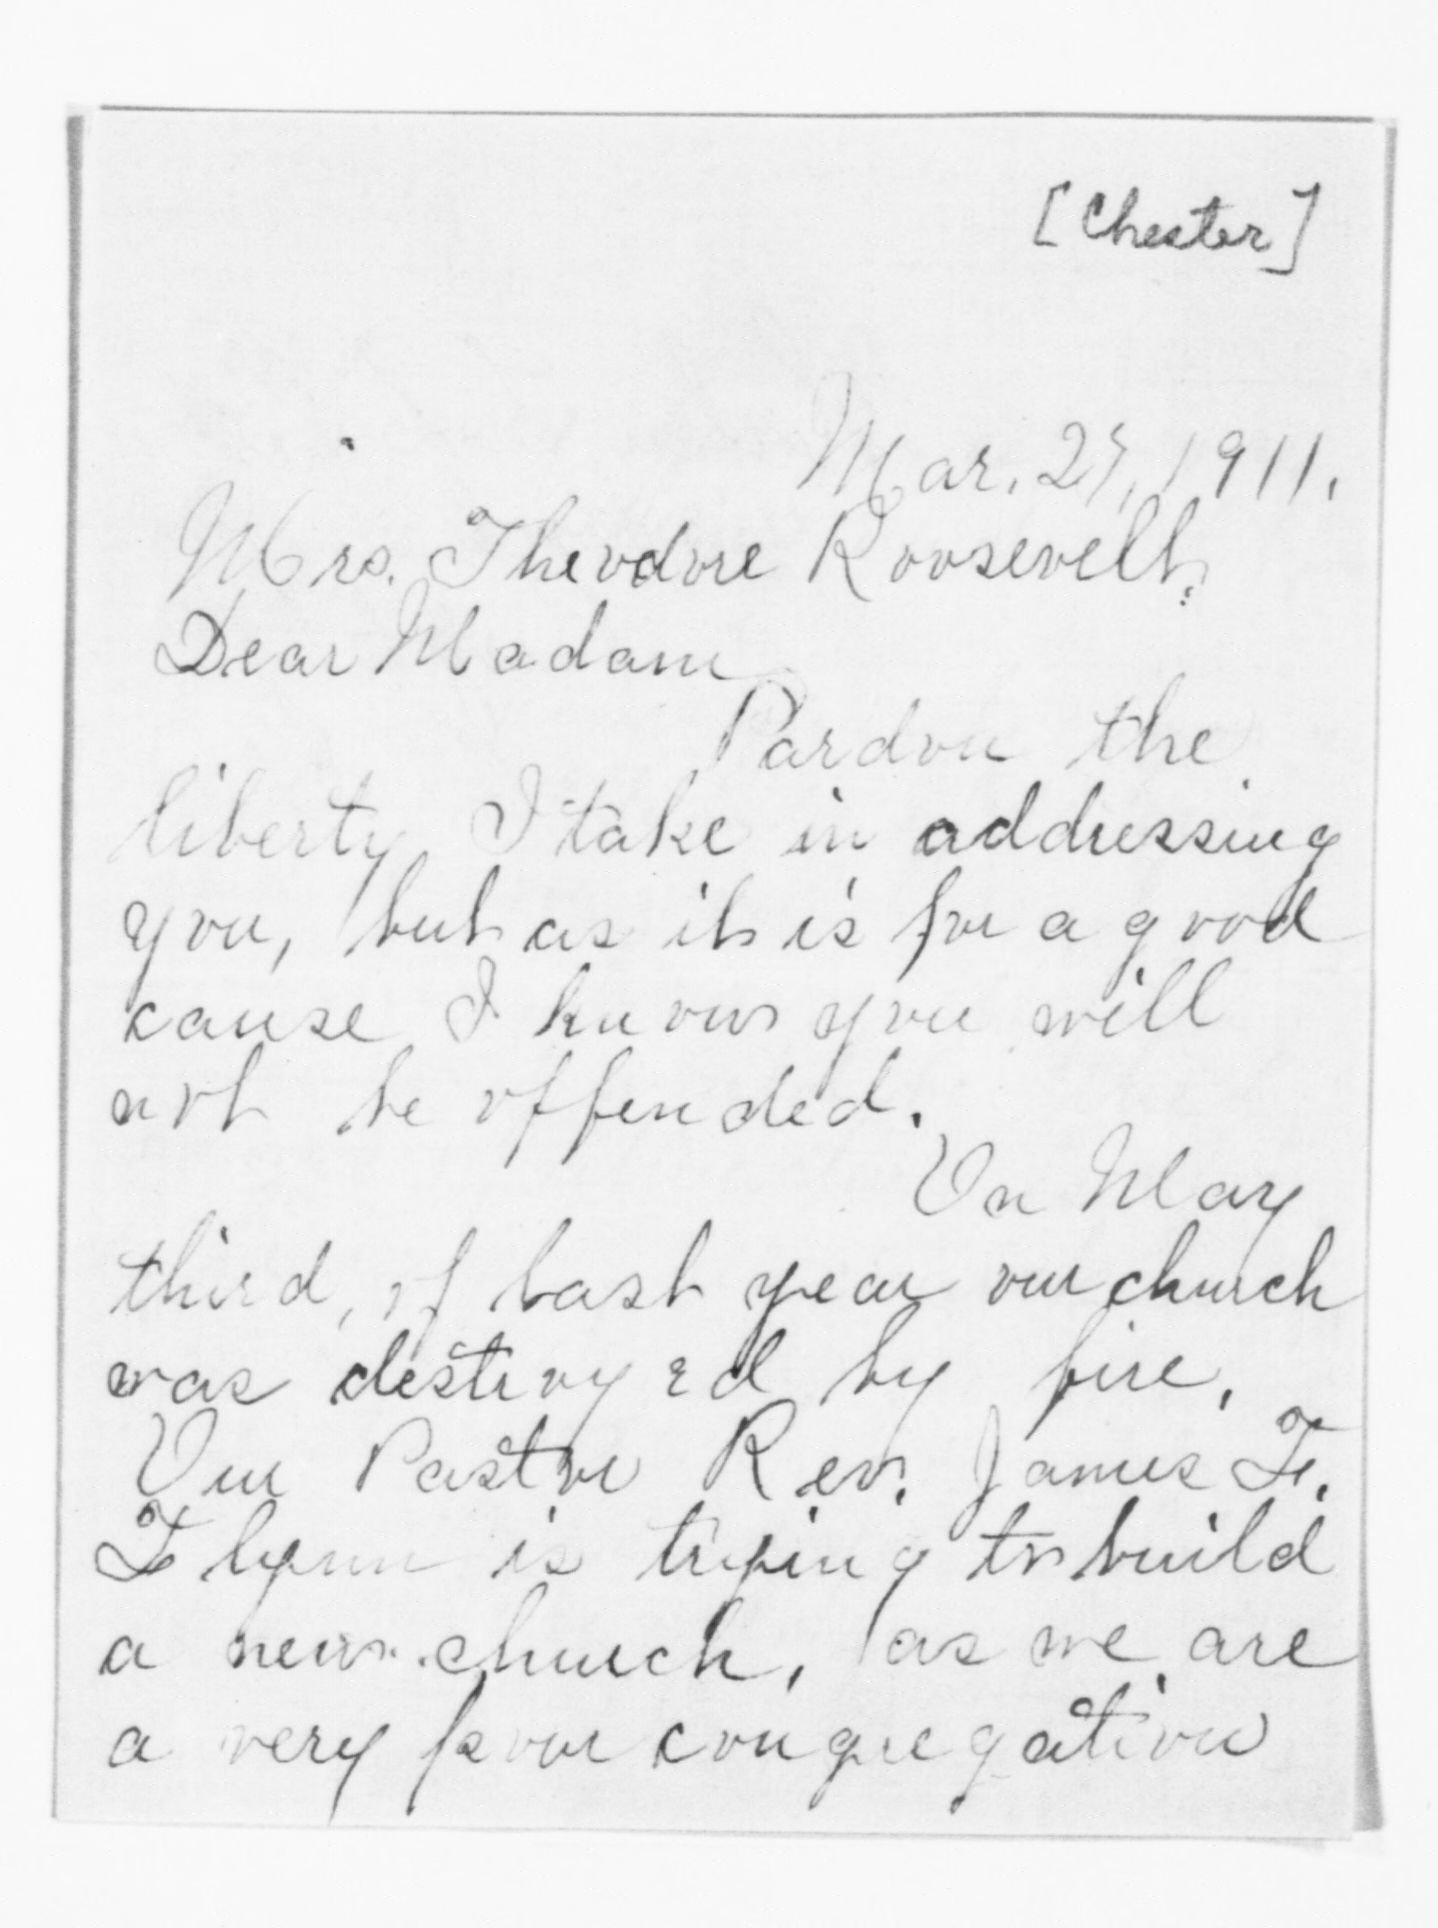 [Chester]
Mar. 27, 1911.
Mrs. Theodore Roosevelt;
Dear Madam
Pardon the
liberty I take in addressing
you, but as it is for a good
cause I know you will
not be offended.
On May
third, of last year our church
was destroyed by fire.
Our Pastor Rev. James F.
Flynn is trying to build
a new church, as we are
a very poor congregation